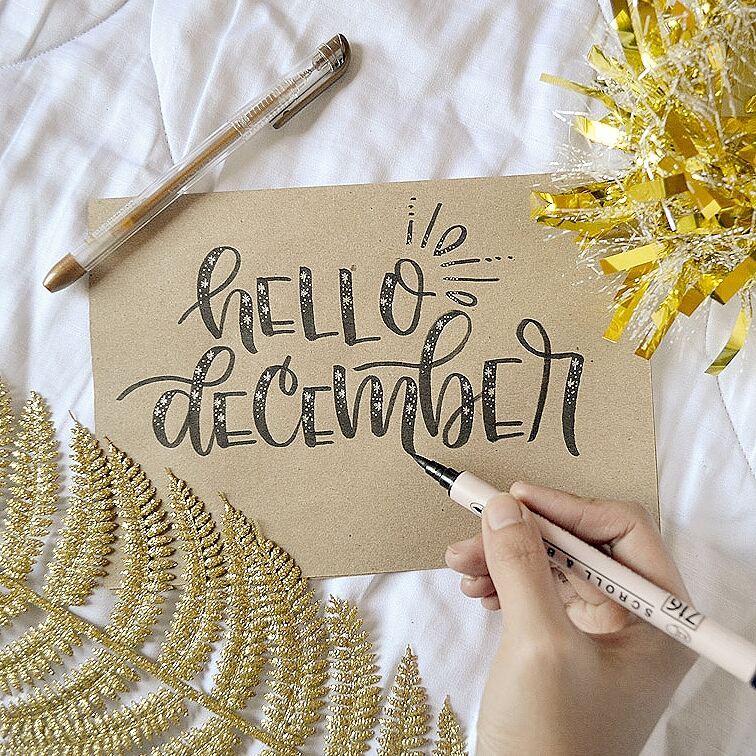 HELLO
DECEMBER
SCROLL & B
716